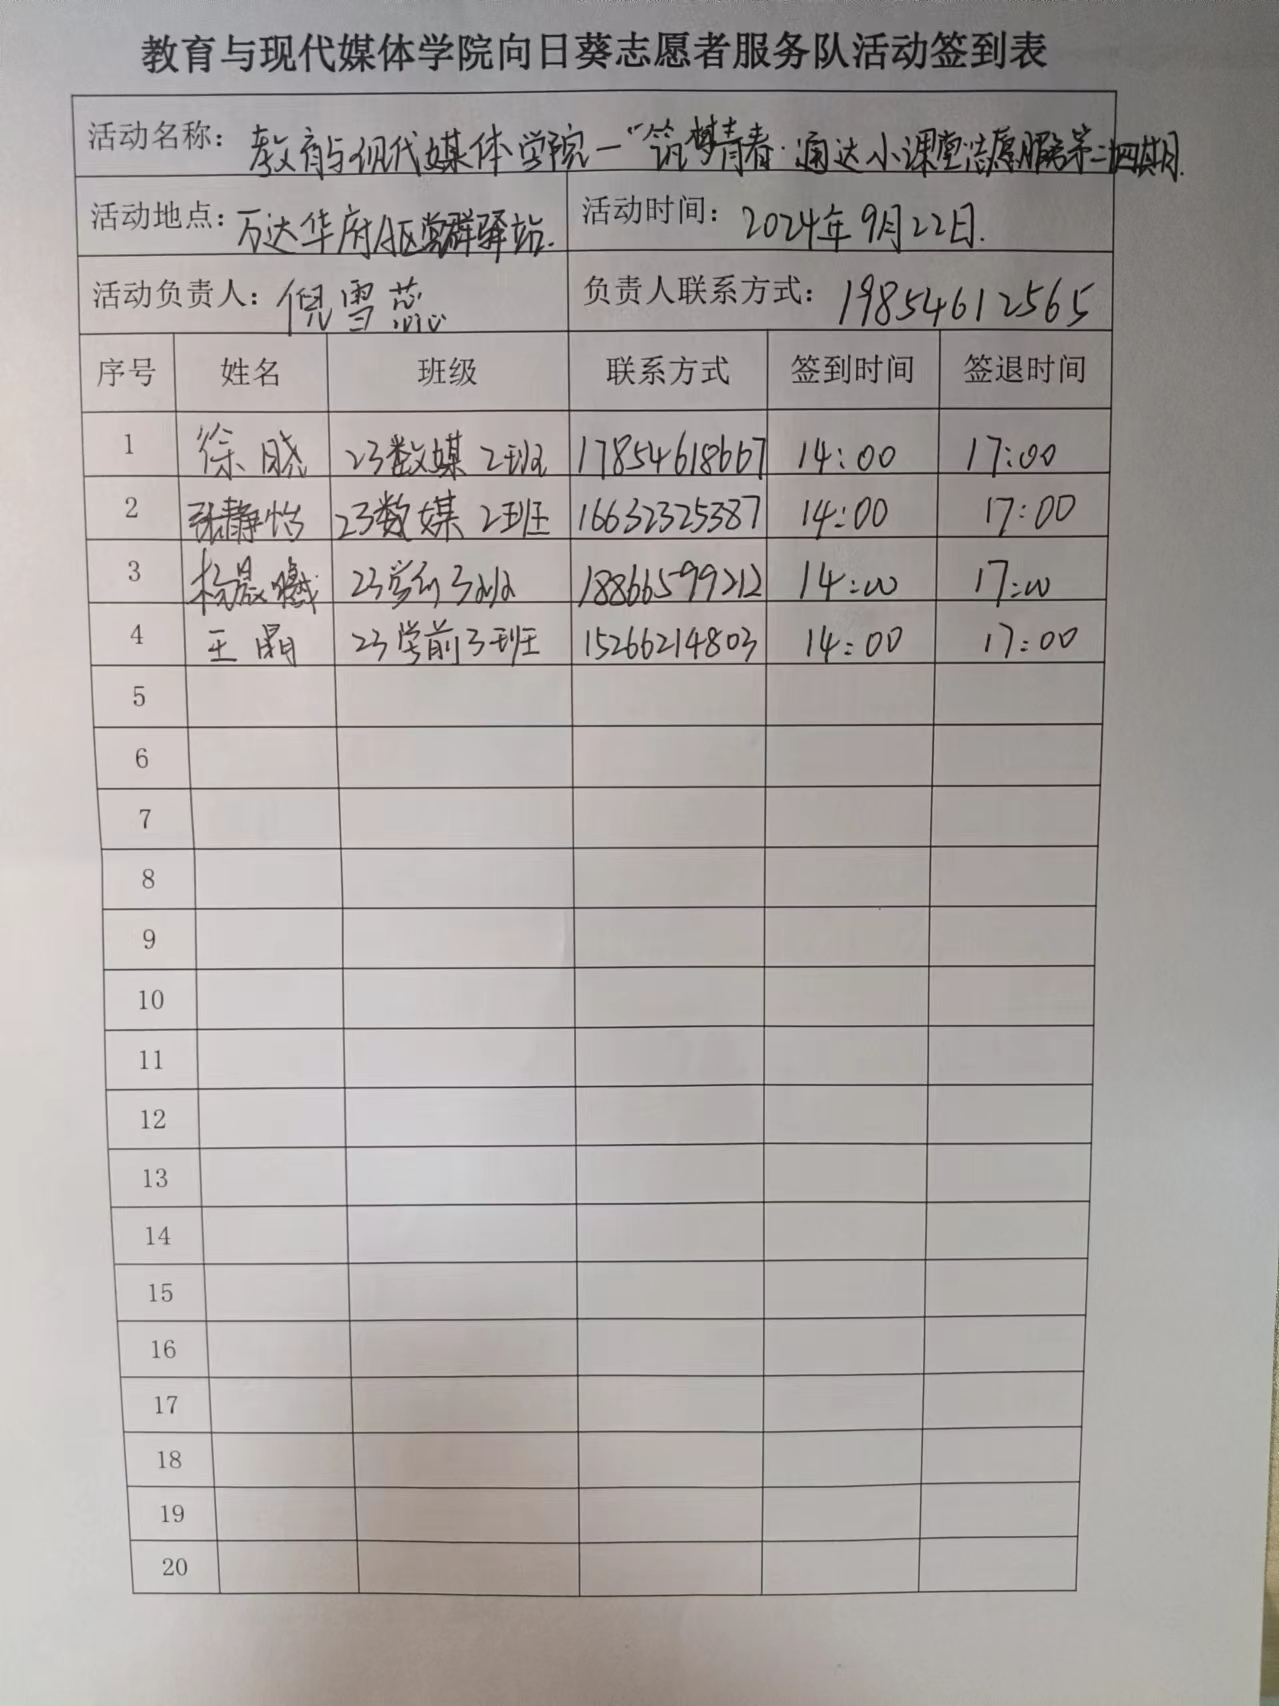 教育与现代媒体学院向日葵志愿者服务队活动签到表
活动名称: 教育与现代媒体学院—"筑梦青春·通达小课堂志愿服务第二十四期
活动地点: 万达华府A区党群驿站. 活动时间: 2024年9月22日.
活动负责人: 倪雪蕊 负责人联系方式: 19854612565
序号 姓名 班级 联系方式 签到时间 签退时间
1 徐晓 23数媒2班 17854618667 14:00 17:00
2 张静怡 23数媒2班 16632325387 14:00 17:00
3 杨晨曦 23学前3班 18866599212 14:00 17:00
4 王晶 23学前3班 15266214803 14:00 17:00
5
6
7
8
9
10
11
12
13
14
15
16
17
18
19
20